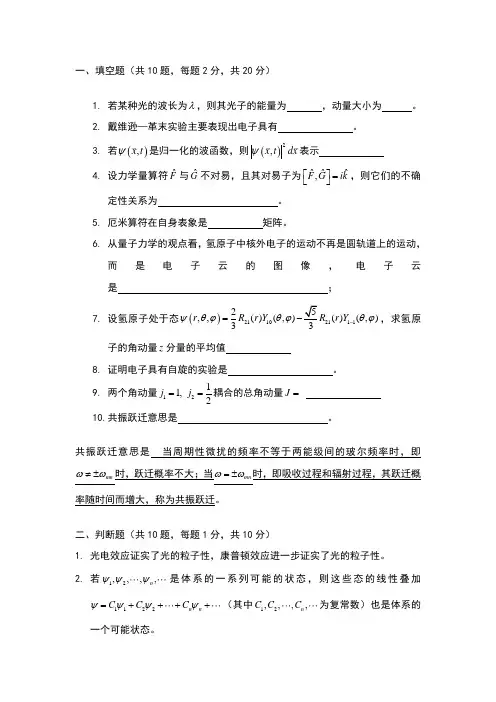 一、填空题（共10题，每题2分，共20分）
1. 若某种光的波长为λ，则其光子的能量为　　　，动量大小为　　　。
2. 戴维逊—革末实验主要表现出电子具有　　　。
3. 若ψ(x,t)是归一化的波函数，则|ψ(x,t)|²dx表示
4. 设力学量算符F̂与Ĝ不对易，且其对易子为[F̂,Ĝ]=ik̂，则它们的不确
定性关系为　　　。
5. 厄米算符在自身表象是　　　矩阵。
6. 从量子力学的观点看，氢原子中核外电子的运动不再是圆轨道上的运动，
而是电子云的图像，电子云
是　　　；
7. 设氢原子处于态ψ(r,θ,φ)=2/3 R₂₁(r)Y₁₀(θ,φ)−√5/3 R₂₁(r)Y₁₋₁(θ,φ)，求氢原
子的角动量z分量的平均值
8. 证明电子具有自旋的实验是　　　。
9. 两个角动量j₁=1, j₂=1/2耦合的总角动量J=
10. 共振跃迁意思是　　　。
共振跃迁意思是 当周期性微扰的频率不等于两能级间的玻尔频率时，即
ω≠±ωₘₙ时，跃迁概率不大；当ω=±ωₘₙ时，即吸收过程和辐射过程，其跃迁概
率随时间而增大，称为共振跃迁。
二、判断题（共10题，每题1分，共10分）
1. 光电效应证实了光的粒子性，康普顿效应进一步证实了光的粒子性。
2. 若ψ₁,ψ₂,⋯,ψₙ,⋯是体系的一系列可能的状态，则这些态的线性叠加
ψ=C₁ψ₁+C₂ψ₂+⋯+Cₙψₙ+⋯（其中C₁,C₂,⋯,Cₙ,⋯为复常数）也是体系的
一个可能状态。